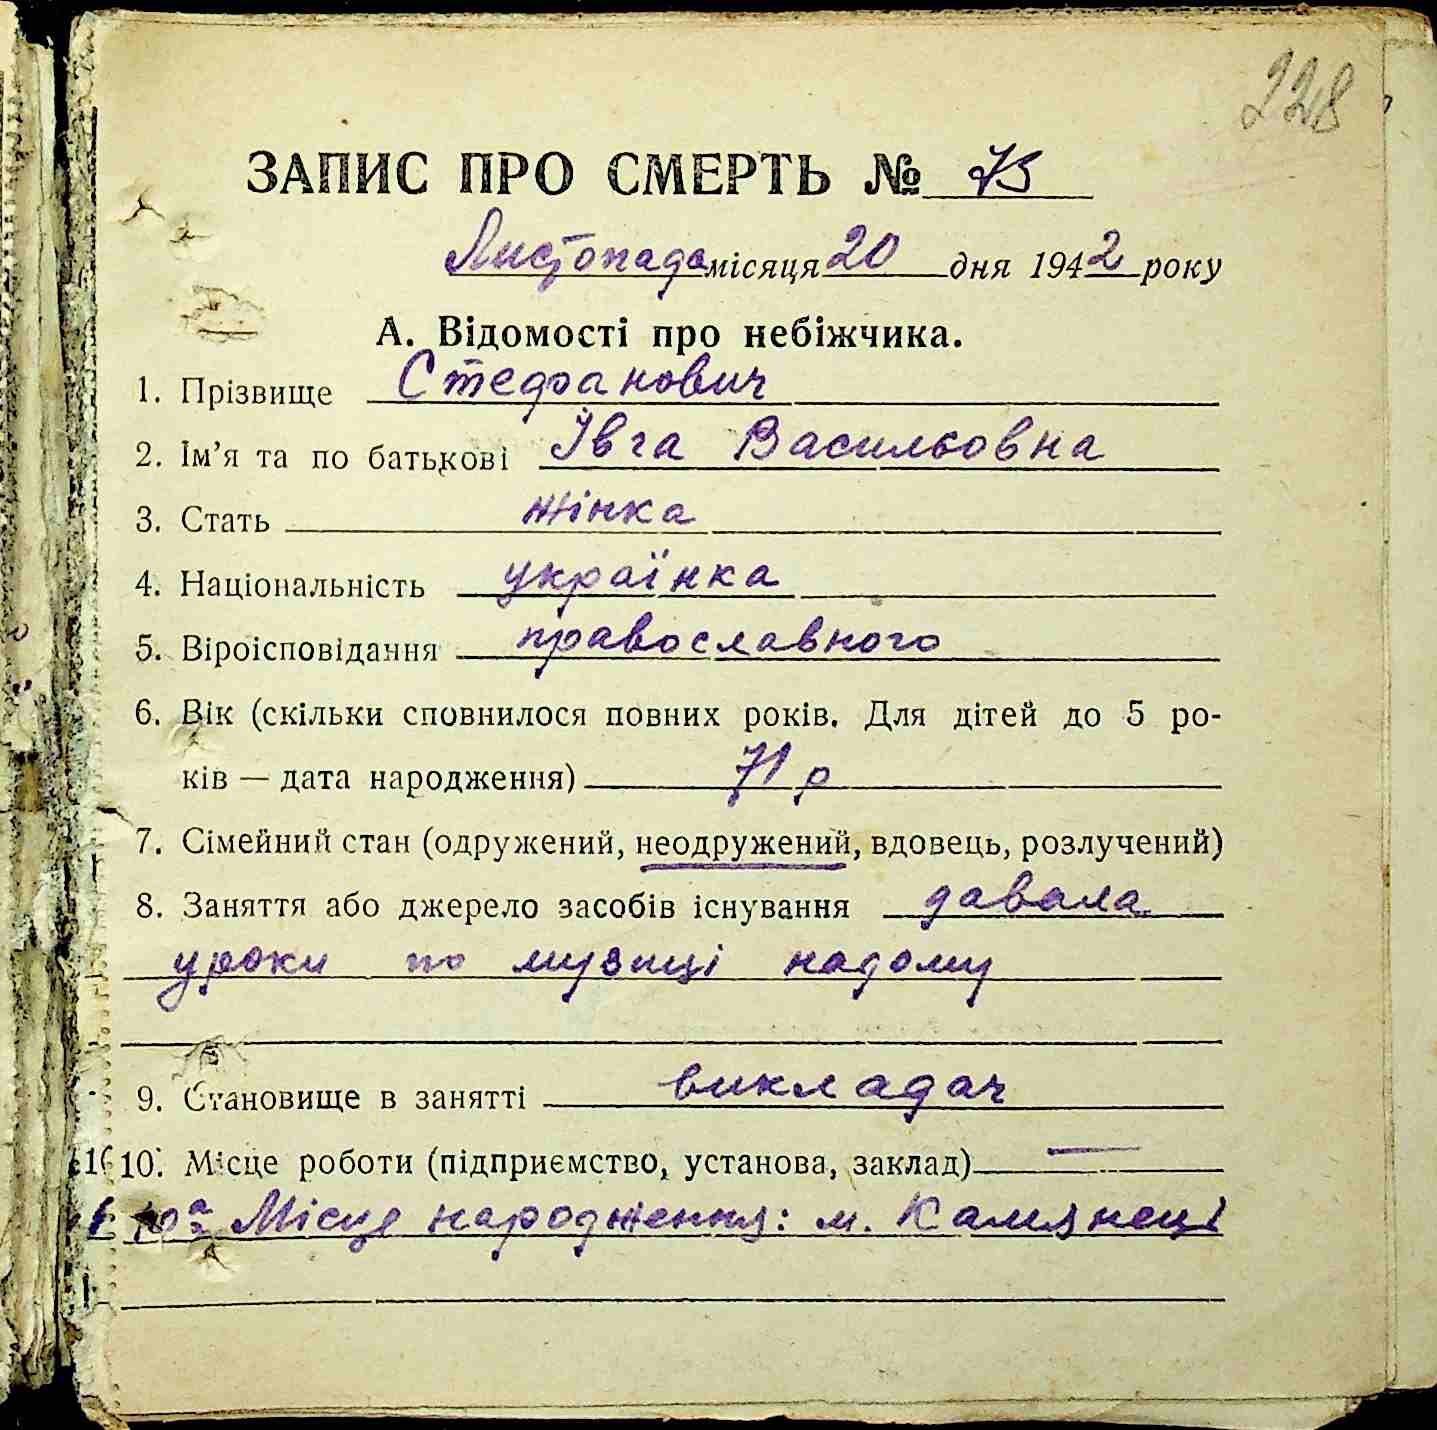 228
ЗАПИС ПРО СМЕРТЬ № 73
Листопада місяця 20 дня 1942 року
А. Відомості про небіжчика.
1. Прізвище Стефанович
2. Ім’я та по батькові Івга Васильовна
3. Стать жінка
4. Національність українка
5. Віроісповідання православного
6. Вік (скільки сповнилося повних років. Для дітей до 5 ро-
ків — дата народження) 71 р
7. Сімейний стан (одружений, неодружений, вдовець, розлучений)
8. Заняття або джерело засобів існування давала
уроки по музиці надому
9. Становище в занятті викладач
10. Місце роботи (підприємство, установа, заклад) —
10а Місце народження: м. Камянеці